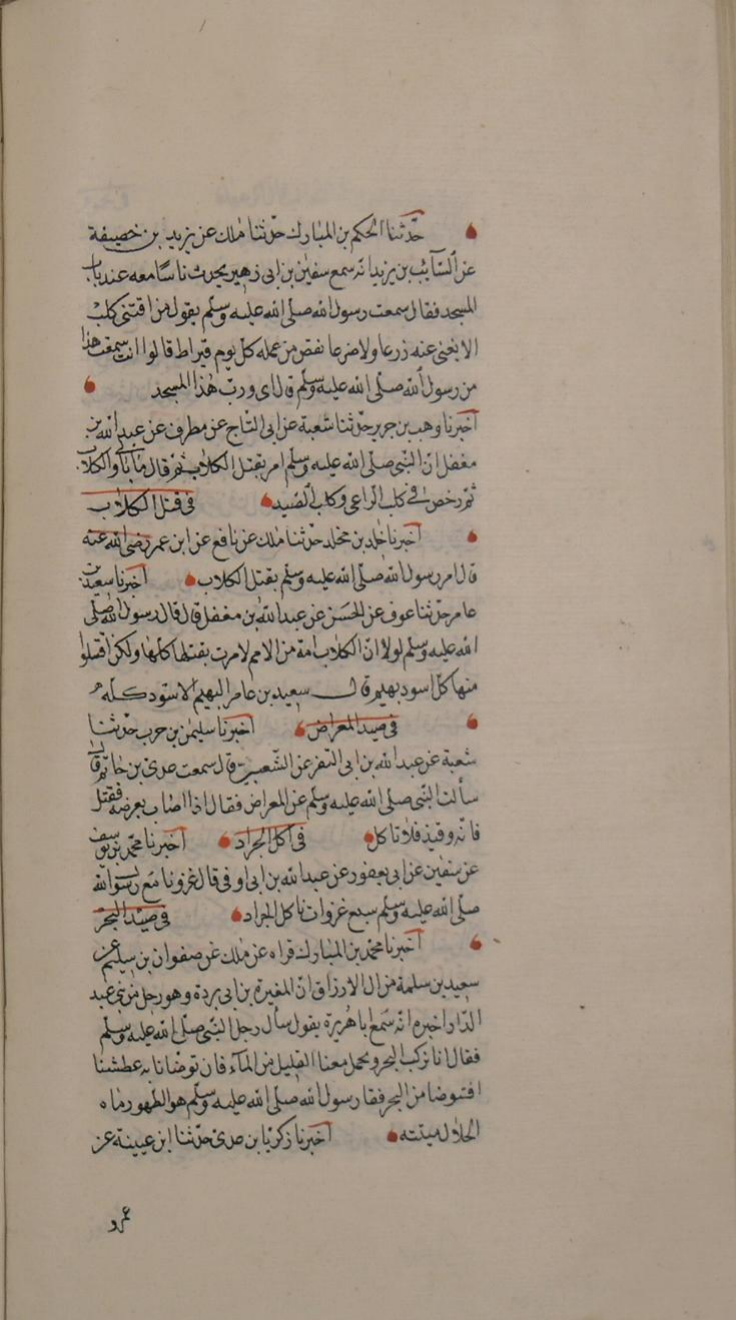 حدثنا الحكم بن المبارك حدثنا ملك عن يزيد بن خصيفة
عن السائب بن يزيد انه سمع سفين بن ابى زهير يحدث ناسا معه عند باب
المسجد فقال سمعت رسول الله صلى الله عليه وسلم يقول من اقتنى كلبا
لا يغنى عنه زرعا ولا ضرعا نقص من عمله كل يوم قيراط قالوا انت سمعت هذا
من رسول الله صلى الله عليه وسلم قال اى ورب هذا المسجد
اخبرنا وهب بن جرير حدثنا شعبة عن ابى التياح عن مطرف عن عبد الله بن
مغفل ان النبى صلى الله عليه وسلم امر بقتل الكلاب ثم قال ما بالى والكلاب
ثم رخص فى كلب الراعى وكلب الصيد فى قتل الكلاب
اخبرنا خلد بن مخلد حدثنا ملك عن نافع عن ابن عمر رضى الله عنه
قال امر رسول الله صلى الله عليه وسلم بقتل الكلاب اخبرنا سعيد بن
عامر حدثنا عوف عن الحسن عن عبد الله بن مغفل قال قال رسول الله صلى
الله عليه وسلم لولا ان الكلاب امة من الامم لامرت بقتلها كلها ولكن اقتلوا
منها كل اسود بهيم قال سعيد بن عامر البهيم الاسود كله
فى صيد المعراض اخبرنا سليمن بن حرب حدثنا
شعبة عن عبد الله بن ابى السفر عن الشعبى قال سمعت عدى بن حاتم قال
سالت النبى صلى الله عليه وسلم عن المعراض فقال اذا اصاب بعرضه فقتل
فانه وقيذ فلا تاكل فى اكل الجراد اخبرنا محمد بن يوسف
عن سفين عن ابى يعفور عن عبد الله بن ابى اوفى قال غزونا مع رسول الله
صلى الله عليه وسلم سبع غزوات ناكل الجراد فى صيد البحر
اخبرنا محمد بن المبارك قراه عن ملك عن صفوان بن سليم عن
سعيد بن سلمة من ال الازرق ان المغيرة بن ابى بردة وهو رجل من بنى عبد
الدار اخبره انه سمع ابا هريرة يقول سأل رجل النبى صلى الله عليه وسلم
فقال انا نركب البحر ونحمل معنا القليل من المآء فان توضانا به عطشنا
افنتوضا من البحر فقا رسول الله صلى الله عليه وسلم هو الطهور ماه
الحلال ميتته اخبرنا زكريا بن عدى حدثنا ابن عيينة عن
عمرو